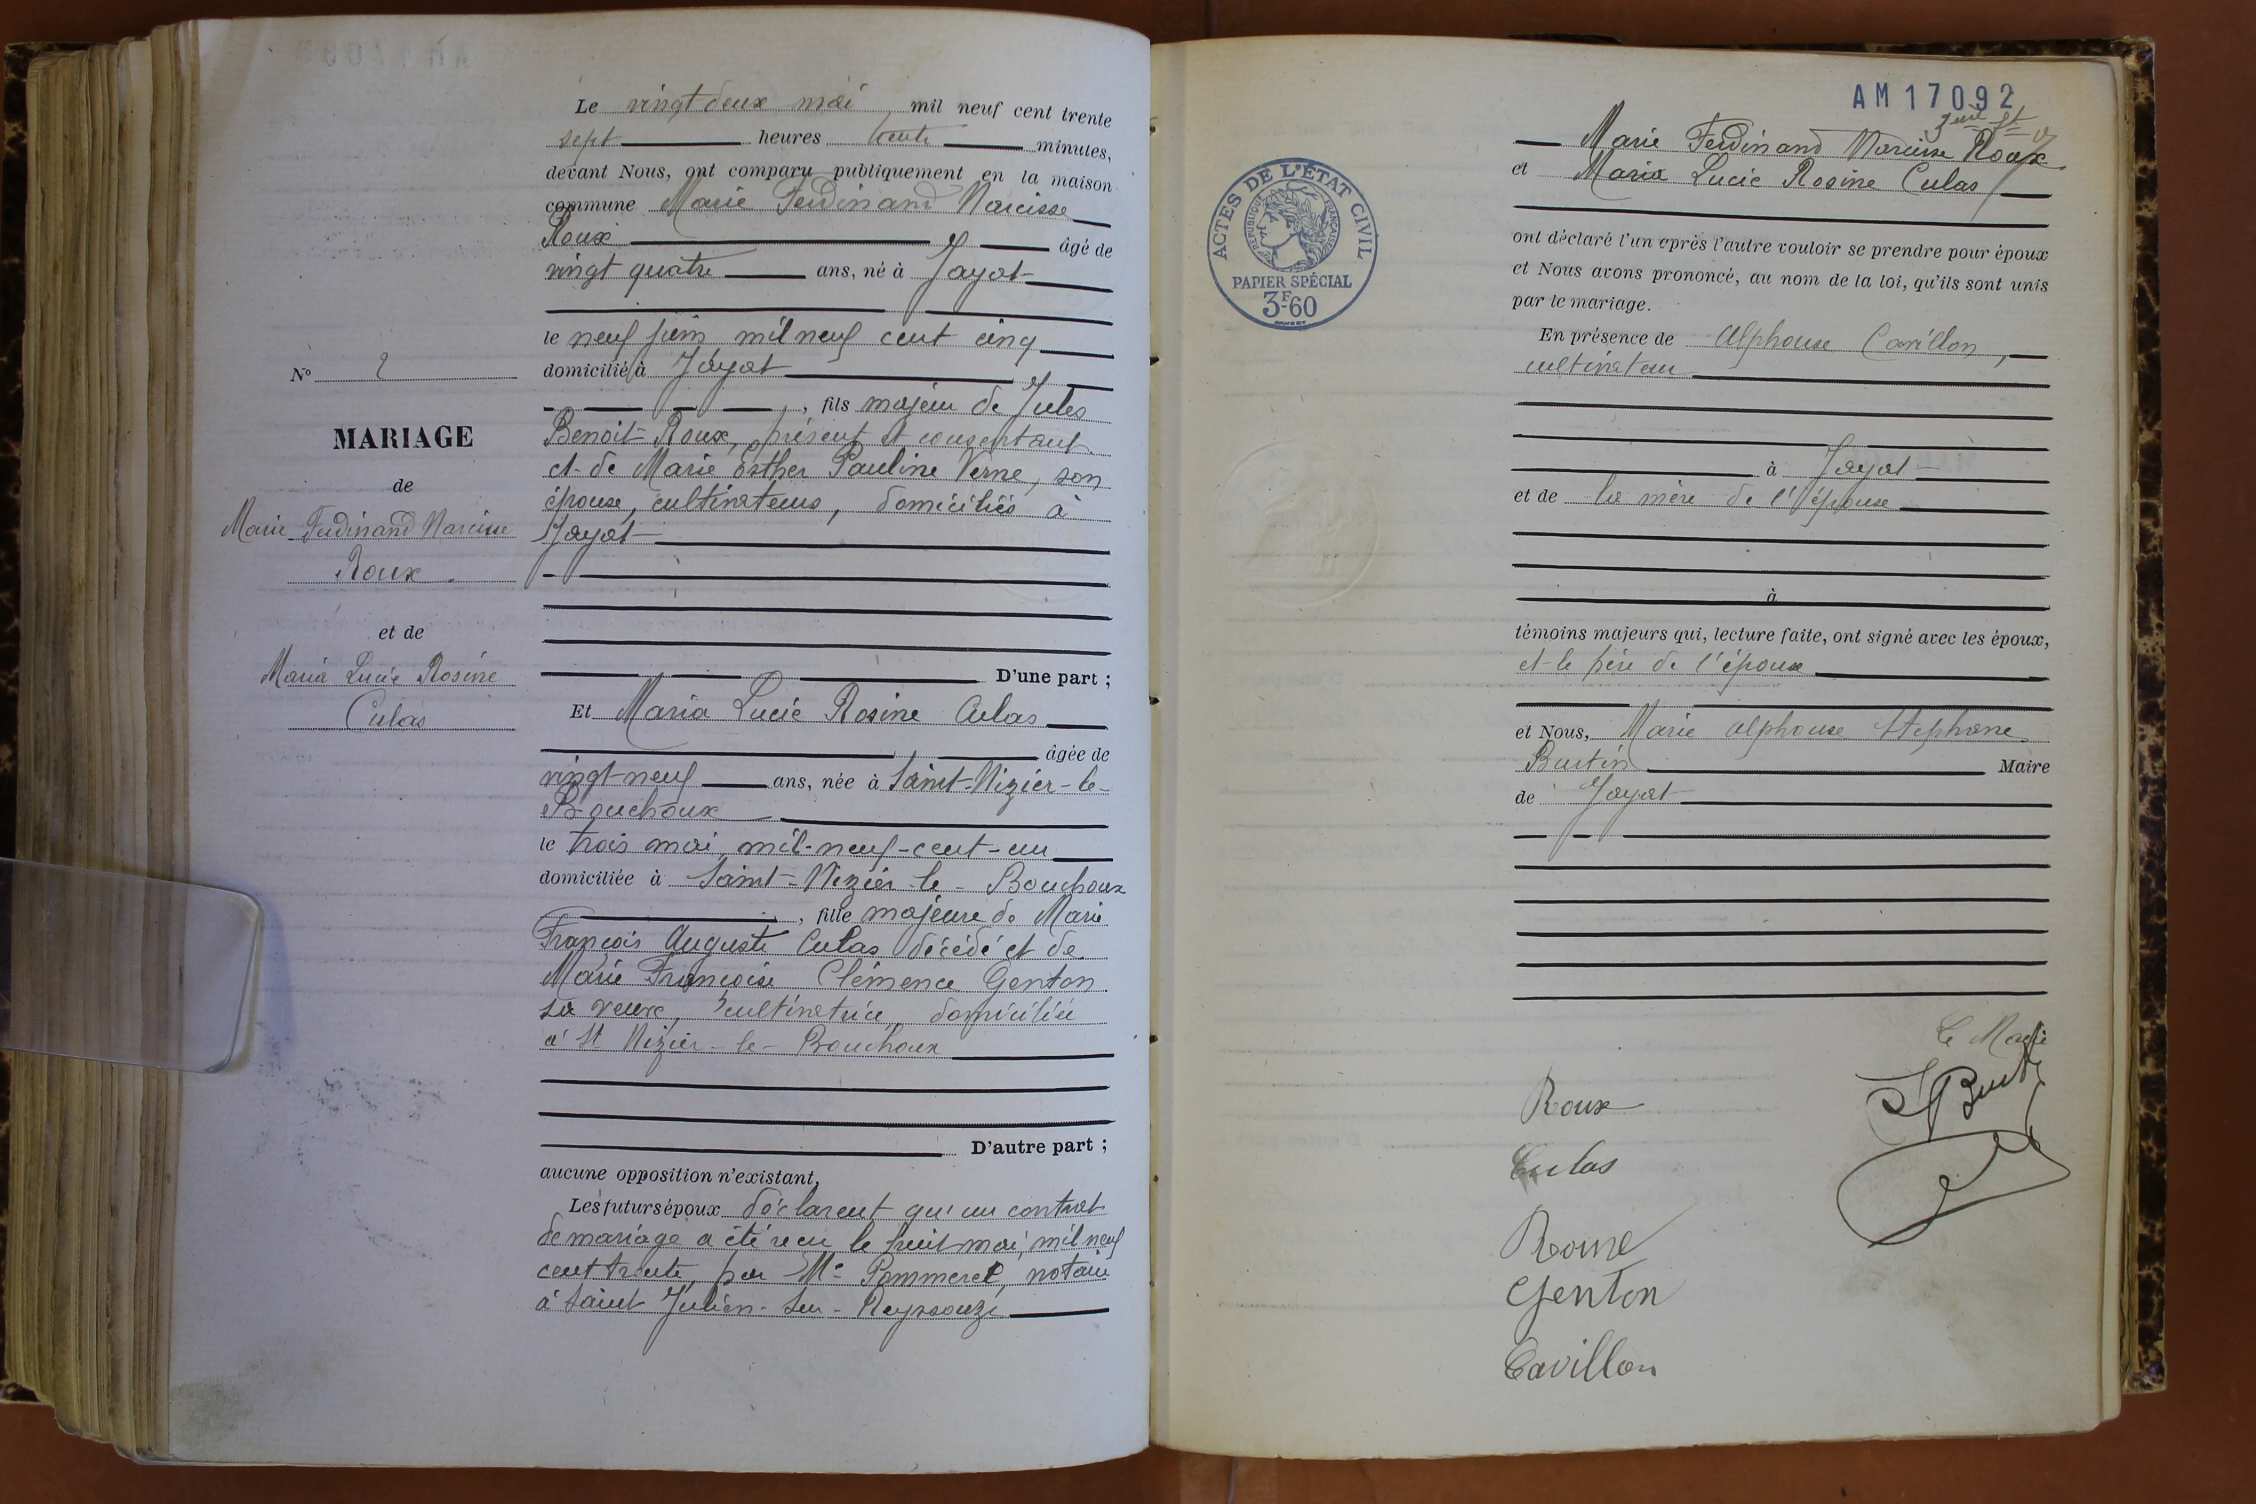 N° 2
MARIAGE
de
Marie Ferdinand Narcisse
Roux
et de
Maria Lucie Rosine
Culas
Le vingt deux mai mil neuf cent trente
sept heures trente minutes,
devant Nous, ont comparu publiquement en la maison
commune Marie Ferdinand Narcisse
Roux âgé de
vingt quatre ans, né à Jayat
le neuf juin mil neuf cent cinq
domicilié à Jayat
, fils majeur de Jules
Benoit Roux, présent et consentant
et de Marie Esther Pauline Verne, son
épouse, cultivateurs, domiciliés à
Jayat
D'une part ;
Et Maria Lucie Rosine Culas
âgée de
vingt neuf ans, née à Saint-Nizier-le-
Bouchoux
le trois mai mil-neuf-cent-un
domiciliée à Saint-Nizier-le-Bouchoux
, fille majeure de Marie
François Auguste Culas décédé et de
Marie Françoise Clémence Genton
sa veuve, cultivatrice, domiciliée
à St Nizier-le-Bouchoux
D'autre part ;
aucune opposition n'existant,
Les futurs époux déclarent qu'un contrat
de mariage a été reçu le huit mai, mil neuf
cent trente, par Me Pommerel, notaire
à Saint Julien-sur-Reyssouze
AM 17092
2me St
Marie Ferdinand Narcisse Roux
et Maria Lucie Rosine Culas
ACTES DE L'ÉTAT CIVIL
RÉPUBLIQUE FRANÇAISE
PAPIER SPÉCIAL
3F-60
ont déclaré l'un après l'autre vouloir se prendre pour époux
et Nous avons prononcé, au nom de la loi, qu'ils sont unis
par le mariage.
En présence de Alphonse Cavillon,
cultivateur
à Jayat
et de la mère de l'épouse
à
témoins majeurs qui, lecture faite, ont signé avec les époux,
et le père de l'époux
et Nous, Marie alphonse Stephane
Burtin Maire
de Jayat
Le Maire
Burtin
Roux
Culas
Roux
Genton
Cavillon